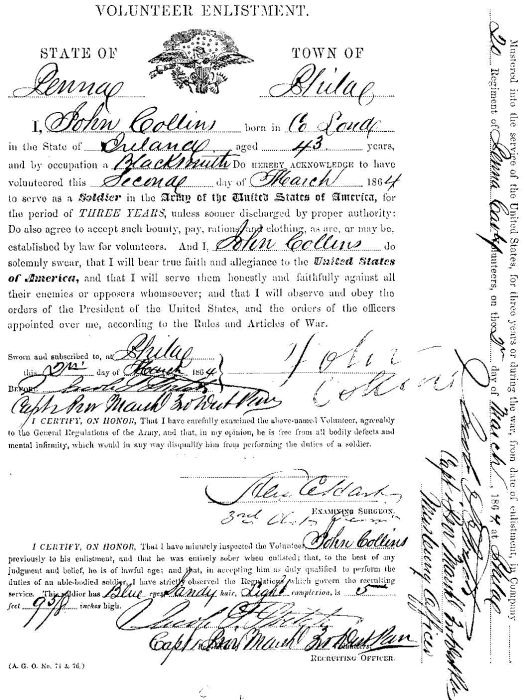 VOLUNTEER ENLISTMENT.
STATE OF TOWN OF
Penna Phila
I, John Collins born in Co
in the State of Ireland aged 43 years,
and by occupation a Blacksmith Do HEREBY ACKNOWLEDGE to have
volunteered this Second day of March 1864
to serve as a Soldier in the Army of the United States of America, for
the period of THREE YEARS, unless sooner discharged by proper authority:
Do also agree to accept such bounty, pay, rations, and clothing, as are, or may be,
established by law for volunteers. And I, John Collins do
solemnly swear, that I will bear true faith and allegiance to the United States
of America, and that I will serve them honestly and faithfully against all
their enemies or opposers whomsoever; and that I will observe and obey the
orders of the President of the United States, and the orders of the officers
appointed over me, according to the Rules and Articles of War.
Sworn and subscribed to, at Phila
this 2nd day of March 1864
John Collins
BEFORE
Capt & Pro Marsh 3rd Dist
I CERTIFY, ON HONOR, That I have carefully examined the above-named Volunteer, agreeably
to the General Regulations of the Army, and that, in my opinion, he is free from all bodily defects and
mental infirmity, which would in any way disqualify him from performing the duties of a soldier.
EXAMINING SURGEON.
I CERTIFY, ON HONOR, That I have minutely inspected the Volunteer, John Collins
previously to his enlistment, and that he was entirely sober when enlisted; that, to the best of my
judgment and belief, he is of lawful age; and that, in accepting him as duly qualified to perform the
duties of an able-bodied soldier, I have strictly observed the Regulations which govern the recruiting
service. This soldier has Blue eyes, Sandy hair, Light complexion, is 5
feet 9 3/8 inches high.
Capt & Pro Marsh 3rd Dist
RECRUITING OFFICER.
(A. G. O. No. 74 & 76.)
Mustered into the service of the United States, for three years or during the war, from date of enlistment, in Company
20 Regiment of Penna Cav Volunteers, on the 2nd day of March, 1864 at Phila
Capt & Pro Marsh 3rd Dist
Mustering Officer